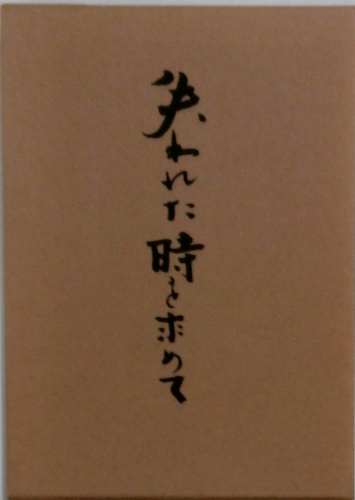 失われた時を求めて